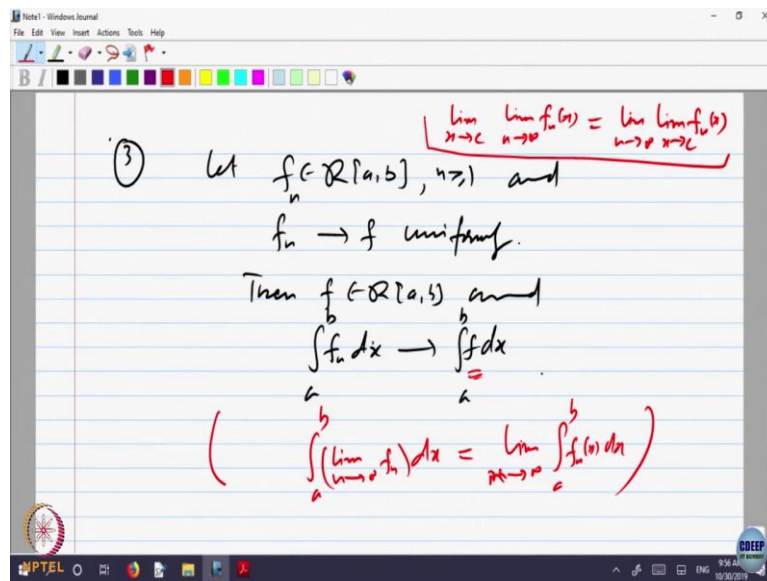 Note1 - Windows Journal
File Edit View Insert Actions Tools Help
B I
lim x→c lim n→∞ fn(x) = lim n→∞ lim x→c fn(x)
③ Let fn ∈ R[a,b], n≥1 and
fn → f uniformly.
Then f ∈ R[a,b] and
∫ₐᵇ fn dx → ∫ₐᵇ f dx
( ∫ₐᵇ (lim n→∞ fn) dx = lim n→∞ ∫ₐᵇ fn(x) dx )
NPTEL
CDEEP
IIT BOMBAY
ENG
9:56 AM
10/30/2019